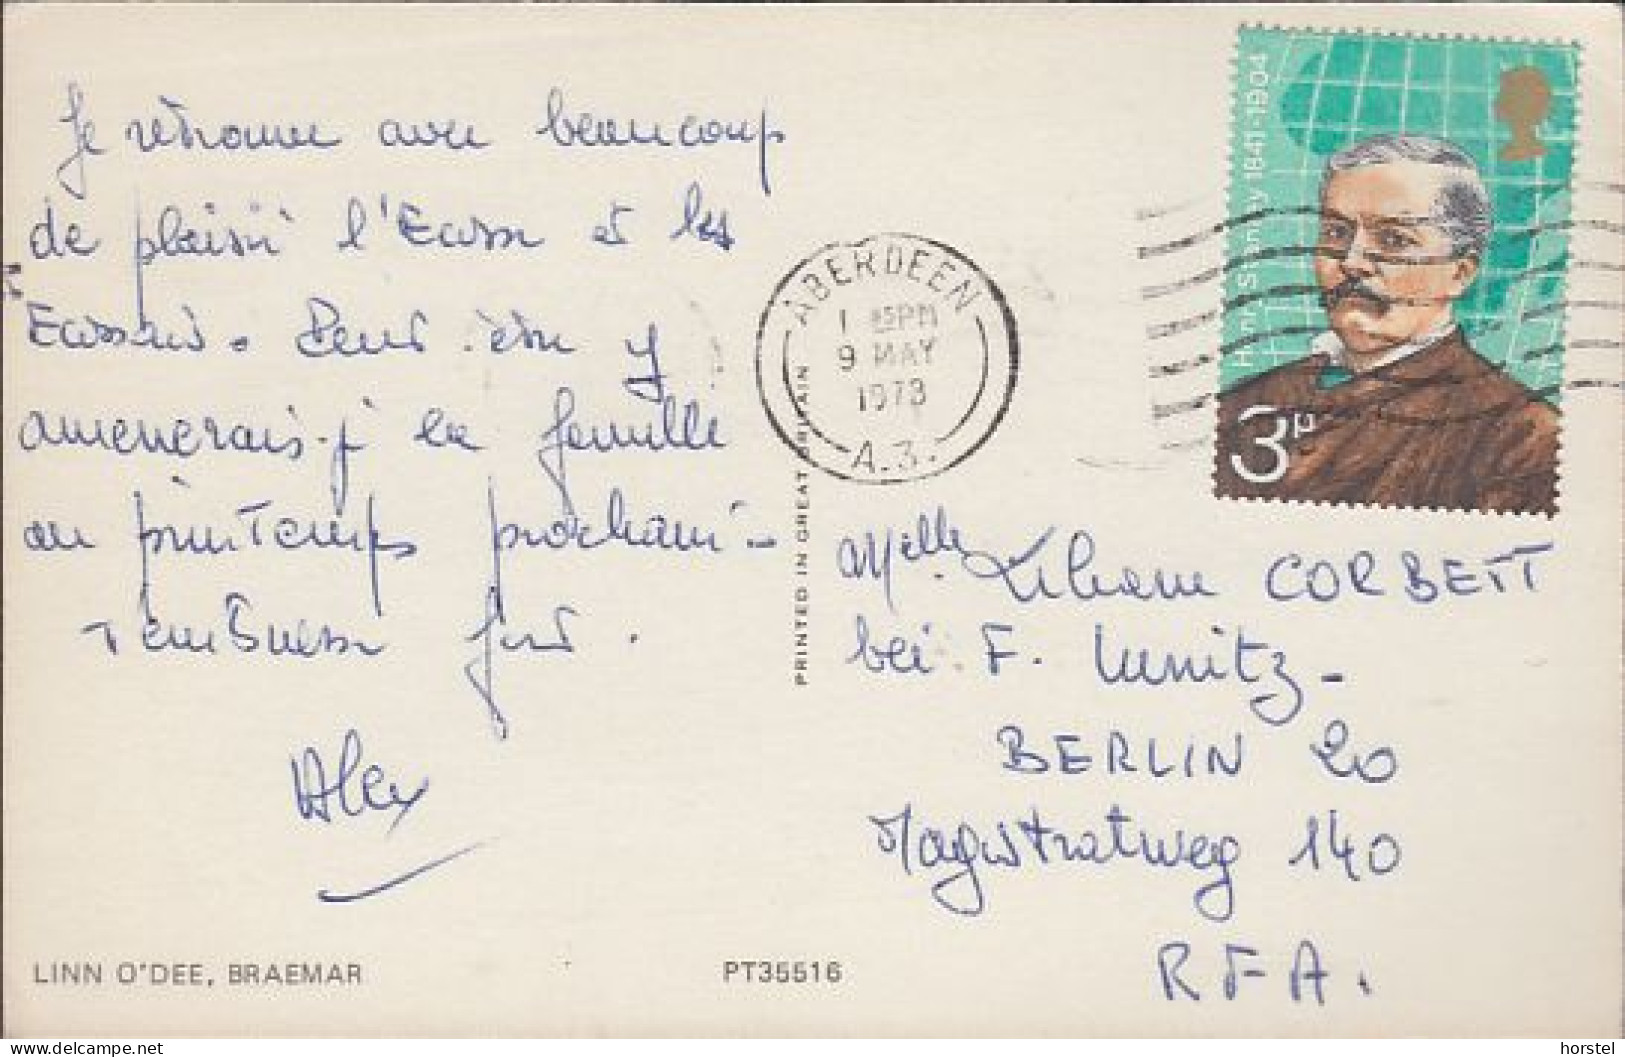 Je retrouve avec beaucoup
de plaisir l'Ecosse et les
Ecossais. Peut-être y
amenerais-j' la famille
au printemps prochain -
Tendresse
Alex
LINN O'DEE, BRAEMAR
PT35516
PRINTED IN GREAT BRITAIN
ABERDEEN
9 MAY
1973
A.3.
Henry Stanley 1841-1904
3P
Melle. Liliane CORBETT
bei F.
BERLIN 20
Magistratweg 140
RFA.
delcampe.net
horstel